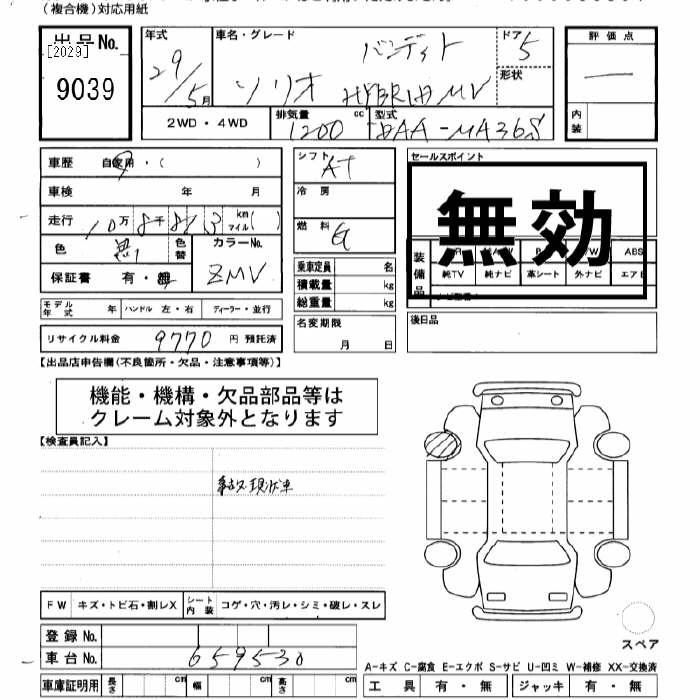 (複合機)対応用紙
出品No.
[2029]
9039
年式
29/5月
車名・グレード
バンディト
ソリオ HYBRID MV
ドア
5
形状
2WD・4WD
排気量
1200
cc
型式
DAA-MA36S
評価点
内装
車歴 自家用・( )
車検 年 月
走行 10万8千883km マイル( )
色 黒
色替
カラーNo.
ZMV
保証書 有・無
モデル年式 年 ハンドル 左・右 ディーラー・並行
リサイクル料金 9770 円 預託済
シフト
AT
冷房
燃料
G
乗車定員 名
積載量 kg
総重量 kg
名変期限
月 日
セールスポイント
無効
装備品
ABS
純TV 純ナビ 革シート 外ナビ エアB
後日品
【出品店申告欄(不良箇所・欠品・注意事項等)】
機能・機構・欠品部品等は
クレーム対象外となります
【検査員記入】
事故現状車
FW キズ・トビ石・割レX シート内装 コゲ・穴・汚レ・シミ・破レ・スレ
登録No.
車台No. 659530
車庫証明用 長さ cm 幅 cm 高さ cm
スペア
A-キズ C-腐食 E-エクボ S-サビ U-凹ミ W-補修 XX-交換済
工具 有・無 ジャッキ 有・無